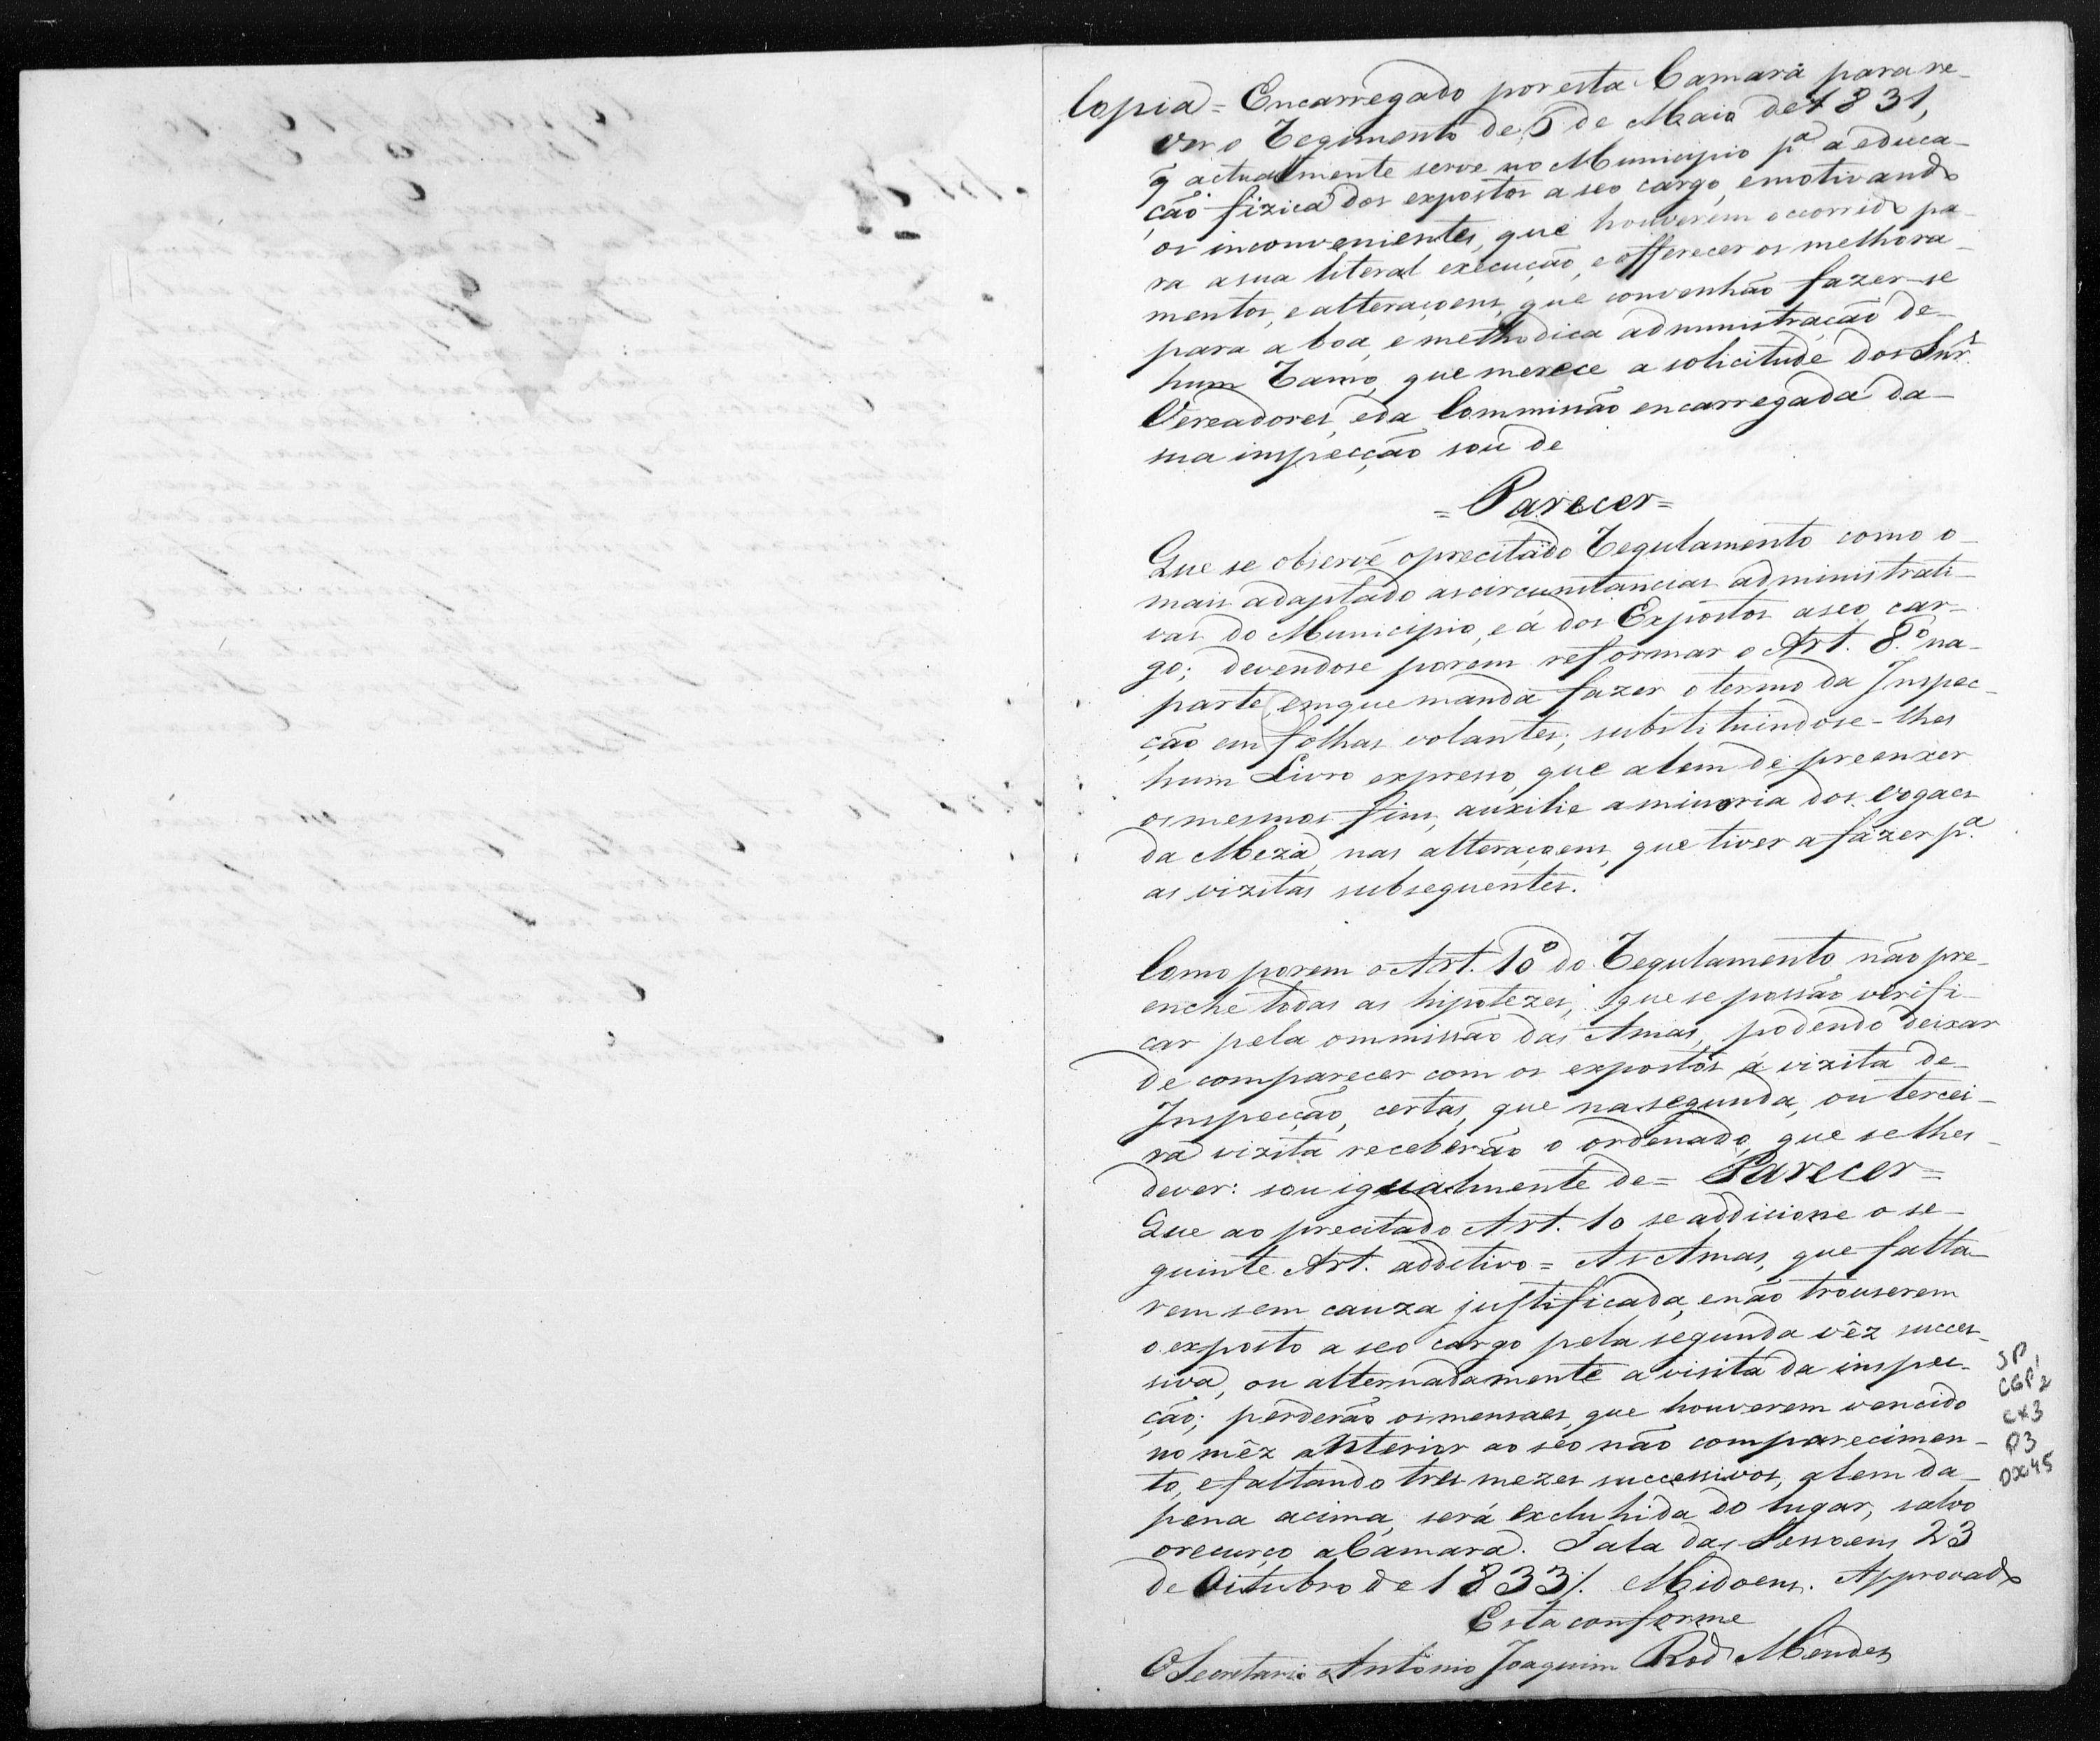 Copia = Encarregado por esta Camara para re-
ver o Regimento de 5 de Maio de 1831,
q̃ actualmente serve no Municipio pª a educa-
ção fizica dos expostos a seo cargo, e motivando
os inconvenientes, que houverem occorrido pa-
ra a sua literal execução, e offerecer os melhora-
mentos, e alteraçoens, que convenhão fazer-se
para a boa, e methodica administração de-
hum Ramo, que merece a solicitude dos Snrs.
Vereadores, e da Commissão encarregada da-
sua inspecção sou de
= Parecer =
Que se observe o precitado Regulamento como o-
mais adaptado as circunstancias administrati-
vas do Municipio, e á dos Expostos a seo car-
go; devendose porem reformar o Art. 8.º na-
parte, em que manda fazer o termo da Inspec-
ção em folhas volantes; substituindose-lhes
hum Livro expresso, que alem de preenxer
os mesmos fins, auxilie a minoria dos Vogaes
da Meza, nas alteraçoens, que tiver a fazer pª.
as vizitas subsequentes.
Como porem o Art. 10º do Regulamento não pre-
enche todas as hipotezes, que se possão verifi-
car pela ommissão das Amas, podendo deixar
de comparecer com os expostos á vizita de-
Inspecção, certas, que na segunda, ou tercei-
ra vizita receberão o ordenado, que se lhes-
dever: sou igualmente de = Parecer =
Que ao precitado Art. 10 se addicione o se-
guinte Art. additivo = As Amas, que falta-
rem sem cauza justificada, e não trouserem
o exposto a seo cargo pela segunda vêz succes-
siva, ou alternadamente a visita da inspec-
ção; perderão os mensaes, que houverem vencido
no mêz anterior ao seo não comparecimen-
to, e faltando tres mezes successivos, alem da-
pena acima, será excluhida do lugar, salvo
o recurço a Camara. Sala das Sessoens 23
de Oitubro de 1833 /. Midoens. Approvado
Esta conforme
O Secretario Antonio Joaquim Rod Mendes
SP
CGP 2
CX3
P3
DX45